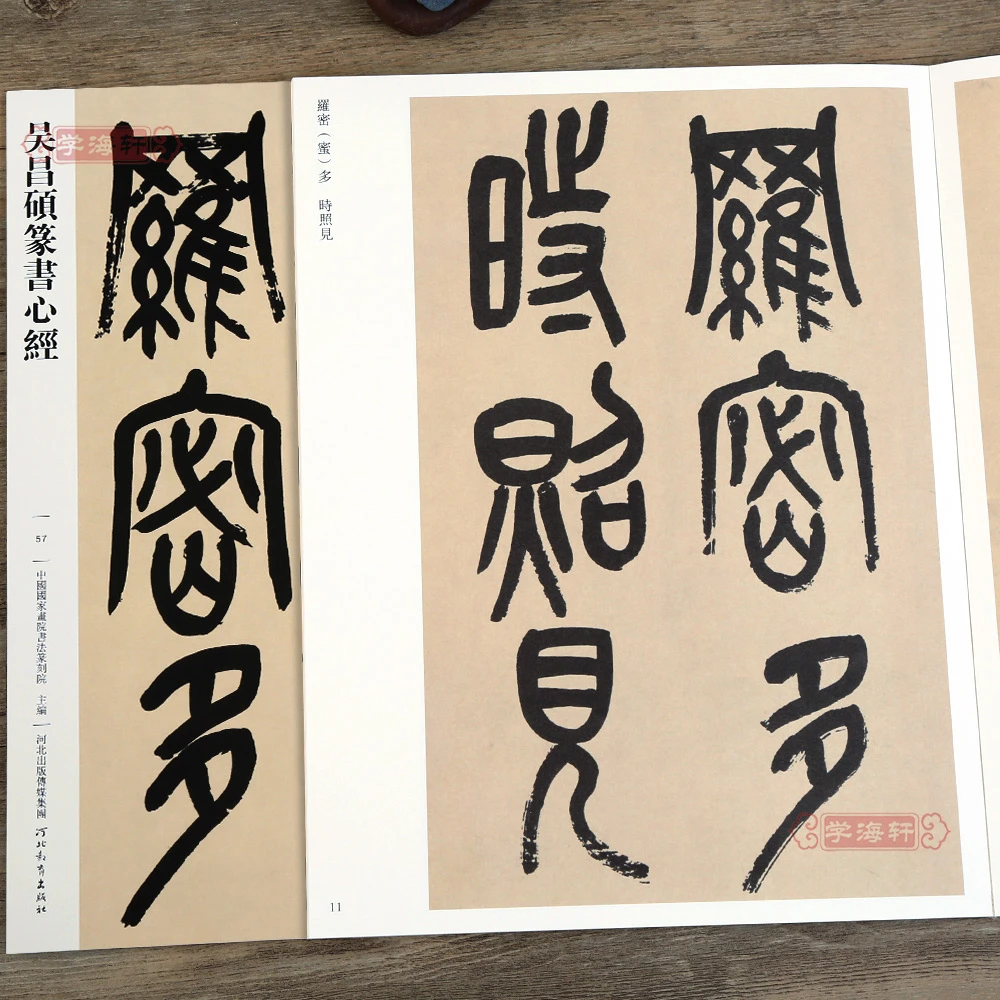 吴昌碩篆書心經
57
中國國家畫院書法篆刻院 主編
河北出版傳媒集團
河北教育出版社
羅密多
学海轩
羅密（蜜）多 時照見
羅密多
時照見
11
学海轩